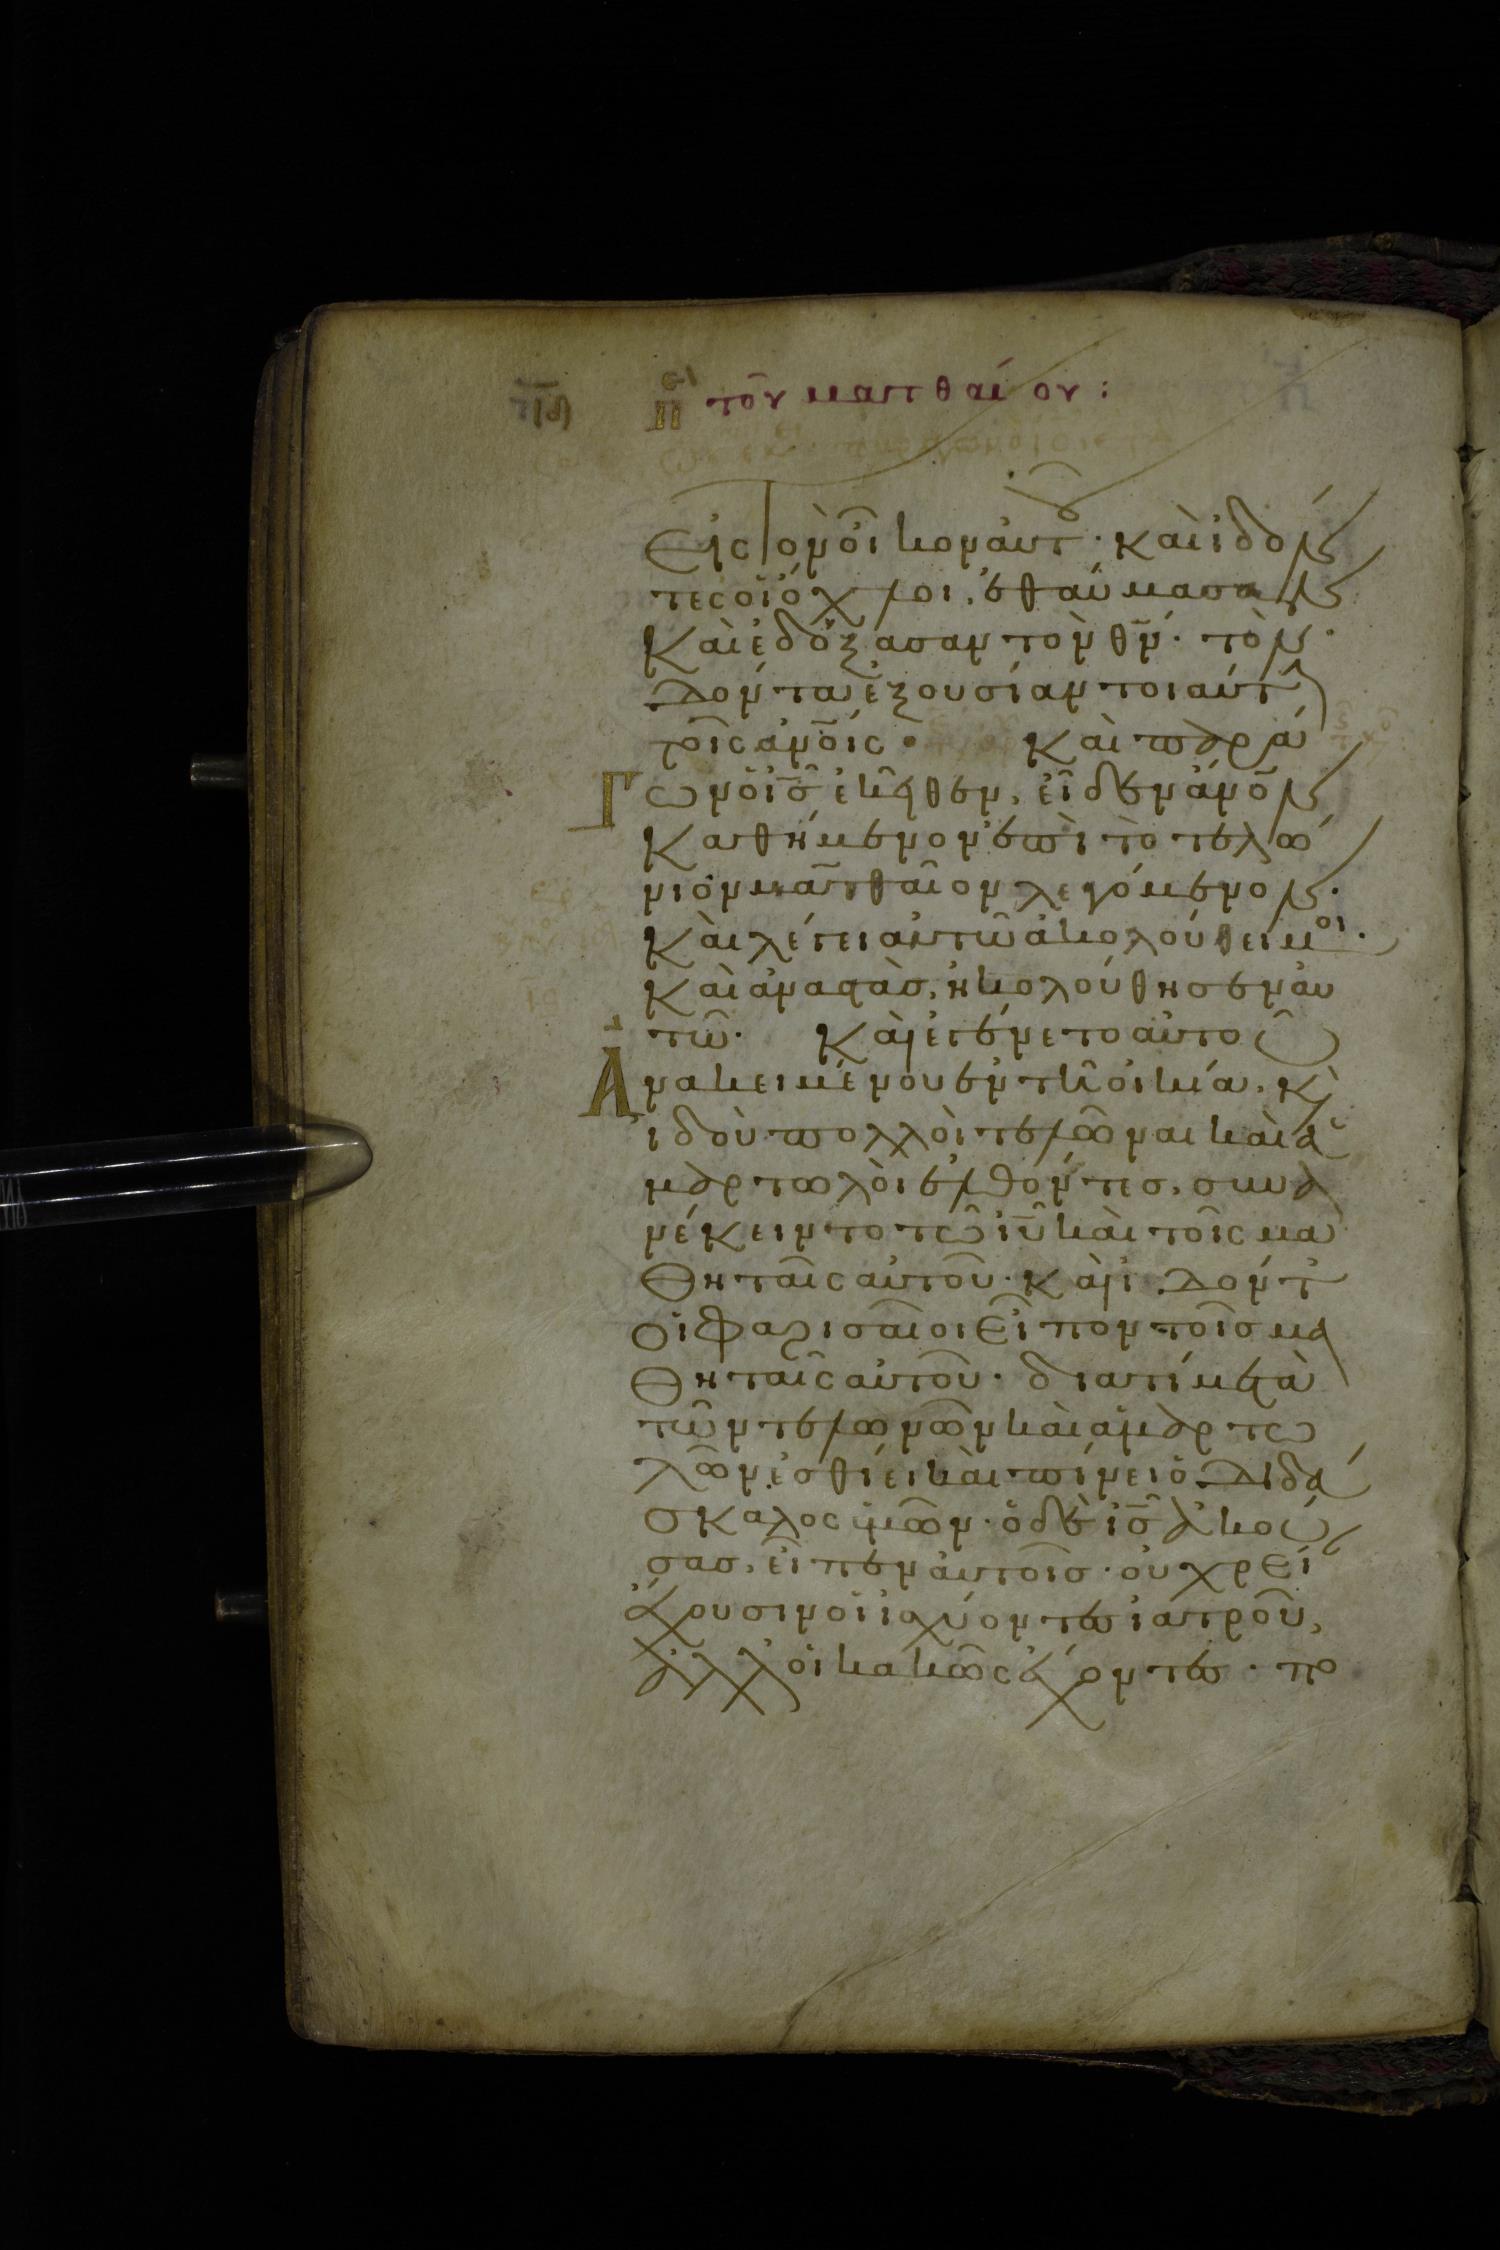 τοῦ ματθαίου :
Εἰς τὸν οἶκον αὐτοῦ · καὶ ἰδόν
τες οἱ ὄχλοι, ἐθαύμασαν
Καὶ ἐδόξασαν τὸν θν̄ · τὸν
Δόντα ἐξουσίαν τοιαύτην
τοῖς ἀνοις · Καὶ παρά
Γων ὁ ις̄ ἐκεῖθεν, εἶδεν ἄνον
Καθήμενον ἐπὶ τὸ τελώ
νιον ματθαῖον λεγόμενον ·
Καὶ λέγει αὐτῶ ἀκολούθει μοι ·
Καὶ ἀναστὰς, ἠκολούθησεν αὐ
τῶ · Καὶ ἐγένετο αὐτοῦ
Ἀνακειμένου ἐν τῆ οἰκία, κὶ
ἰδοὺ πολλοὶ τελῶναι καὶ ἁ
μαρτωλοὶ ἐλθόντες, συνα
νέκειντο τῶ ιῡ καὶ τοῖς μα
Θηταῖς αὐτοῦ · Καὶ ἰδόντες
Οἱ Φαρισαῖοι Εἶπον τοῖς μα
Θηταῖς αὐτοῦ · διατί μετὰ
τῶν τελωνῶν καὶ ἁμαρτω
λῶν ἐσθίει καὶ πίνει ὁ Διδά
σκαλος ὑμῶν · ὁ δὲ ις̄ ἀκού
σας, εἶπεν αὐτοῖς · οὐ χρεί
ἔχουσιν οἱ ἰσχύοντες ἰατροῦ,
ἀλλ' οἱ κακῶς ἔχοντες · πο